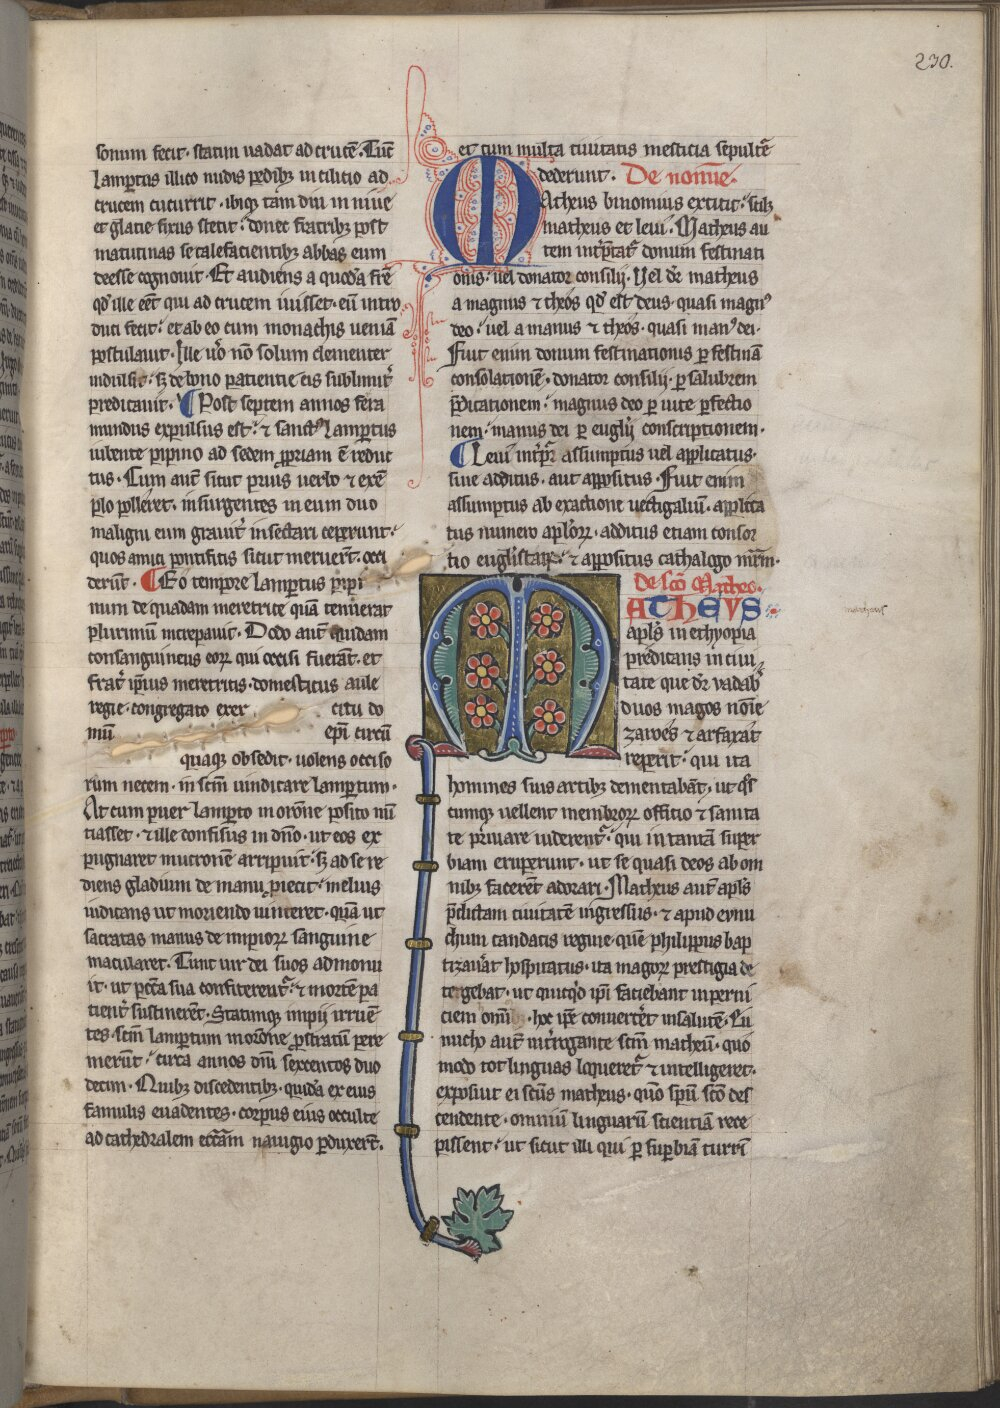 230.
sonum fecit. statim uadat ad crucē. Tūc
lamƿtus illico nudis pedibꝫ in cilicio ad
crucem cucurrit. ibiqꝫ tam diu in niue
et glacie fixus stetit. donec fratribꝫ post
matutinas se calefacientibꝫ abbas eum
deesse cognouit. Et audiens a quodā frē
qd̕ ille eēt qui ad crucem iuisset. eū intro
duci fecit. et ab eo cum monachis ueniā
postulauit. Ille ũo nō solum clementer
indulsit. sꝫ de bono patientie eis sublimit̕
predicauit. ¶ Post septem annos fera
mundus expulsus est. ⁊ sanctꝰ lamꝑtus
iubente pipino ad sedem ꝓpriam ē reduc
tus. Cum aut̄ sicut prius uerbo ⁊ exē
plo polleret. insurgentes in eum duo
maligni eum grauit̕ insectari ceperunt.
quos amici pontificis sicut meruer̄t. occi
der̄t. ¶ Eo tempore lamꝑtus pipi
num de quadam meretrice quā tenuerat
plurimū increpauit. Dodo aut̄ quidam
consanguineus eoꝝ qui occisi fuerāt. et
frat̕ ip̄ius meretricis. domesticus aule
regie. congregato exer citu do
mū ep̄i circū
quaqꝫ obsedit. uolens occiso
rum necem. in scm̄ uindicare lamꝑtum.
At cum puer lamꝑto in orōne posito nū
tiasset. ⁊ ille confisus in dn̄o. ut eos ex
pugnaret mucronē arripuit. sꝫ ad se re
diens gladium de manu ꝓiecit. melius
iudicans ut moriendo uinceret. quā ut
sacratas manus de impioꝝ sanguine
macularet. Tunc uir dei suos admonu
it. ut pccā sua confiterent̕. ⁊ mortē pa
tient̕ sustinerēt. Statimqꝫ impij irruē
tes. scm̄ lamꝑtum in orōne ꝓstratū pere
merūt. circa annos dn̄i sexcentos duo
decim. Quibꝫ discedentibꝫ. quidā ex eius
famulis euadentes. corpus eius occulte
ad cathedralem eccl̄iam nauigio ꝑduxerūt.
et cum multa ciuitatis mesticia sepultē
dederunt. De noīne.
Matheus binomius extitit. scil̄ꝫ
matheus et leui. Matheus au
tem int̕pͭat̕ donum festinati
onis. uel donator consilij. Uel dr̄ matheus
a magnus ⁊ theos qd̕ est deus. quasi magnꝰ
deo. uel a manus ⁊ theos. quasi manꝰ dei.
Fuit enim donum festinationis ꝑ festinā
consolationē. donator consilij. ꝑ salubrem
p̄dicationem. magnus deo ꝑ uite ꝑfectio
nem. manus dei ꝑ eugl̄ij conscriptionem.
¶ Leui int̕pr̕ assumptus uel applicatus.
siue additus. aut appositus. Fuit enim
assumptus ab exactione uectigaliū. applica
tus numero apl̄oꝝ. additus etiam consor
tio eugl̄istaꝝ. ⁊ appositus cathalogo mr̄m.
De scō Matheo.
MATHEVS
apl̄s in ethyopia
predicans in ciui
tate que dr̄ uadab̕
duos magos noīe
zaroes ⁊ arfaxat
reperit. qui ita
homines suis artibꝫ dementabāt. ut qͦs
cumqꝫ uellent membroꝝ officio ⁊ sanita
te priuare uiderent̕. qui in tantā super
biam eruperunt. ut se quasi deos ab om
nibꝫ facerēt adorari. Matheus aut̄ apl̄s
p̄dictam ciuitatē ingressus. ⁊ apud eynu
chum candacis regine. quē philippus bap
tizau̕at hospitatus. ita magoꝝ prestigia de
tegebat. ut quicqͥd ip̄i faciebant in perni
ciem omī. hoc ip̄e conuert̕et in salutē. Eu
nucho aut̄ int̕rogante scm̄ matheū. quo
modo tot linguas loqueret̕ ⁊ intelligeret.
exposuit ei scūs matheus. quō spū scō des
cendente. omniū linguarū scientiā rece
pissent. ut sicut illi qui ꝑ suꝑbiā turrī